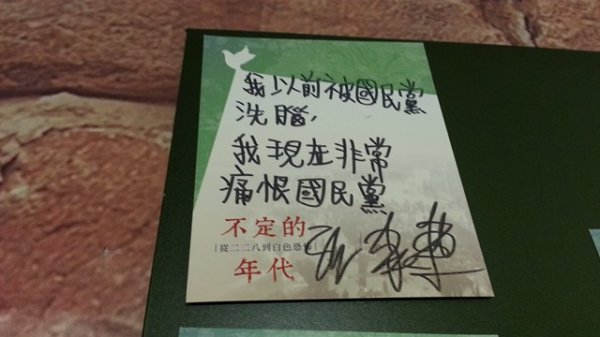 我以前被國民黨
洗腦,
我現在非常
痛恨國民黨
不定的
「從二二八到白色恐怖」
年代